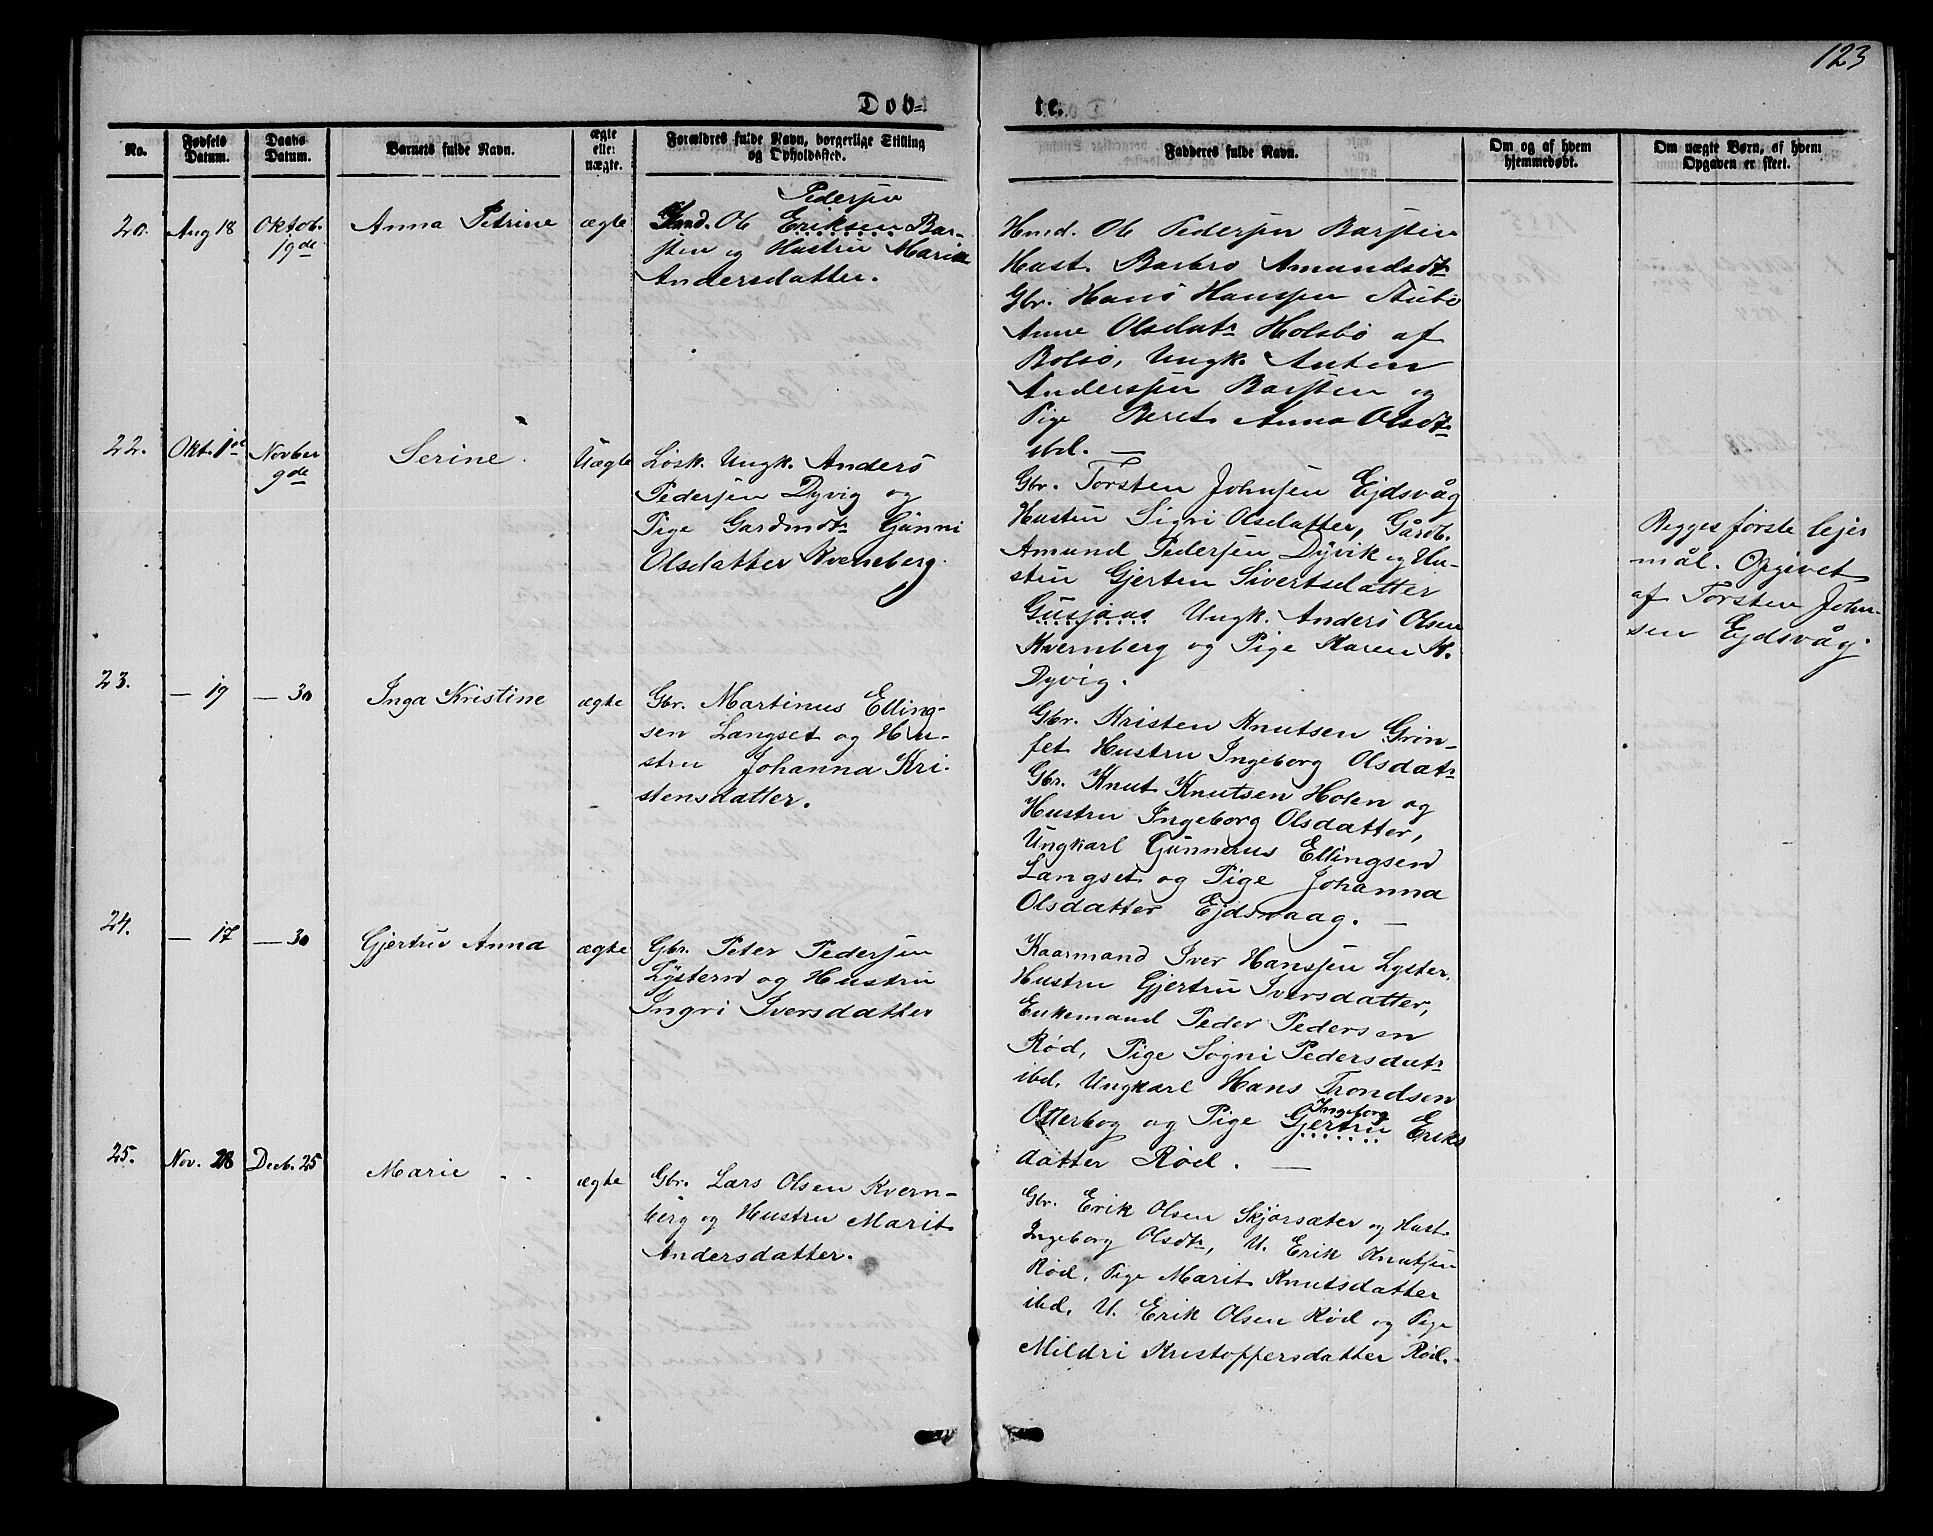 123
Døb=
te.
No.
Fødsels Datum.
Daabs Datum.
Barnets fulde Navn.
ægte eller uægte.
Forældres fulde Navn, borgerlige Stilling og Opholdssted.
Fadderes fulde Navn.
Om og af hvem hjemmedøbt.
Om uægte Børn, af hvem Opgaven er skeet.
20.
Aug 18
Oktob.
19de
Anna Petrine
ægte
Pedersen
Hmd. Ole Eriksen Bar-
sten og Hustru Marit
Andersdatter.
Hmd. Ole Pedersen Barsten
Hust. Barbro Amundsdtr
Gbr. Hans Hanssen Stubø
Anne Olsdatr Holsbø af
Bolsø, Ungk. Anten
Anderssen Barsten og
Pige Beret Anna Olsdtr
ibd. —
22.
Okt. 1de
Novber
9de
Serine.
Uægte
Løsk. Ungk. Anders
Pedersen Dyvig og
Pige Gardmdtr Gunni
Olsdatter Kverneberg.
Gbr. Torsten Johnsen Ejdsvåg
Hustru Sigri Olsdatter, Gårdb.
Amund Pedersen Dyvik og Hu-
stru Gjerten Sivertsdatter
Gusjaas Ungk. Anders Olsen
Kvernberg og Pige Karen K.
Dyvig.
Begges første lejer
mål. Opgivet
af Torsten John-
sen Ejdsvåg.
23.
— 19
— 30
Inga Kristine
ægte
Gbr. Martinus Elling-
sen Langset og Hu-
stru Johanna Kri-
stensdatter.
Gbr. Kristen Knutsen Grin-
set Hustru Ingeborg Olsdatr
Gbr. Knut Knutsen Holen og
Hustru Ingeborg Olsdatter,
Ungkarl Gunnerus Ellingsen
Langset og Pige Johanna
Olsdatter Ejdsvaag. —
24.
— 17
— 30
Gjertru Anna
ægte
Gbr. Peter Pedersen
Lystern og Hustru
Ingri Iversdatter
Kaarmand Iver Hanssen Lyster.
Hustru Gjertru Iversdatter,
Enkemand Peder Pedersen
Rød, Pige Sogni Pedersdatr
ibd, Ungkarl Hans Trondsen
Ingeborg
Otterbog og Pige Gjertru Eriks
datter Rød. —
25.
Nov. 28
Decb. 25
Marie
ægte
Gbr. Lars Olsen Kvern-
berg og Hustru Marit
Andersdatter.
Gbr. Erik Olsen Skjørsæter og Hust.
Ingeborg Olsdtr, U. Erik Knutsen
Rød, Pige Marit Knutsdatter
ibd, U. Erik Olsen Rød og Pige
Mildri Kristoffersdatter Rød.